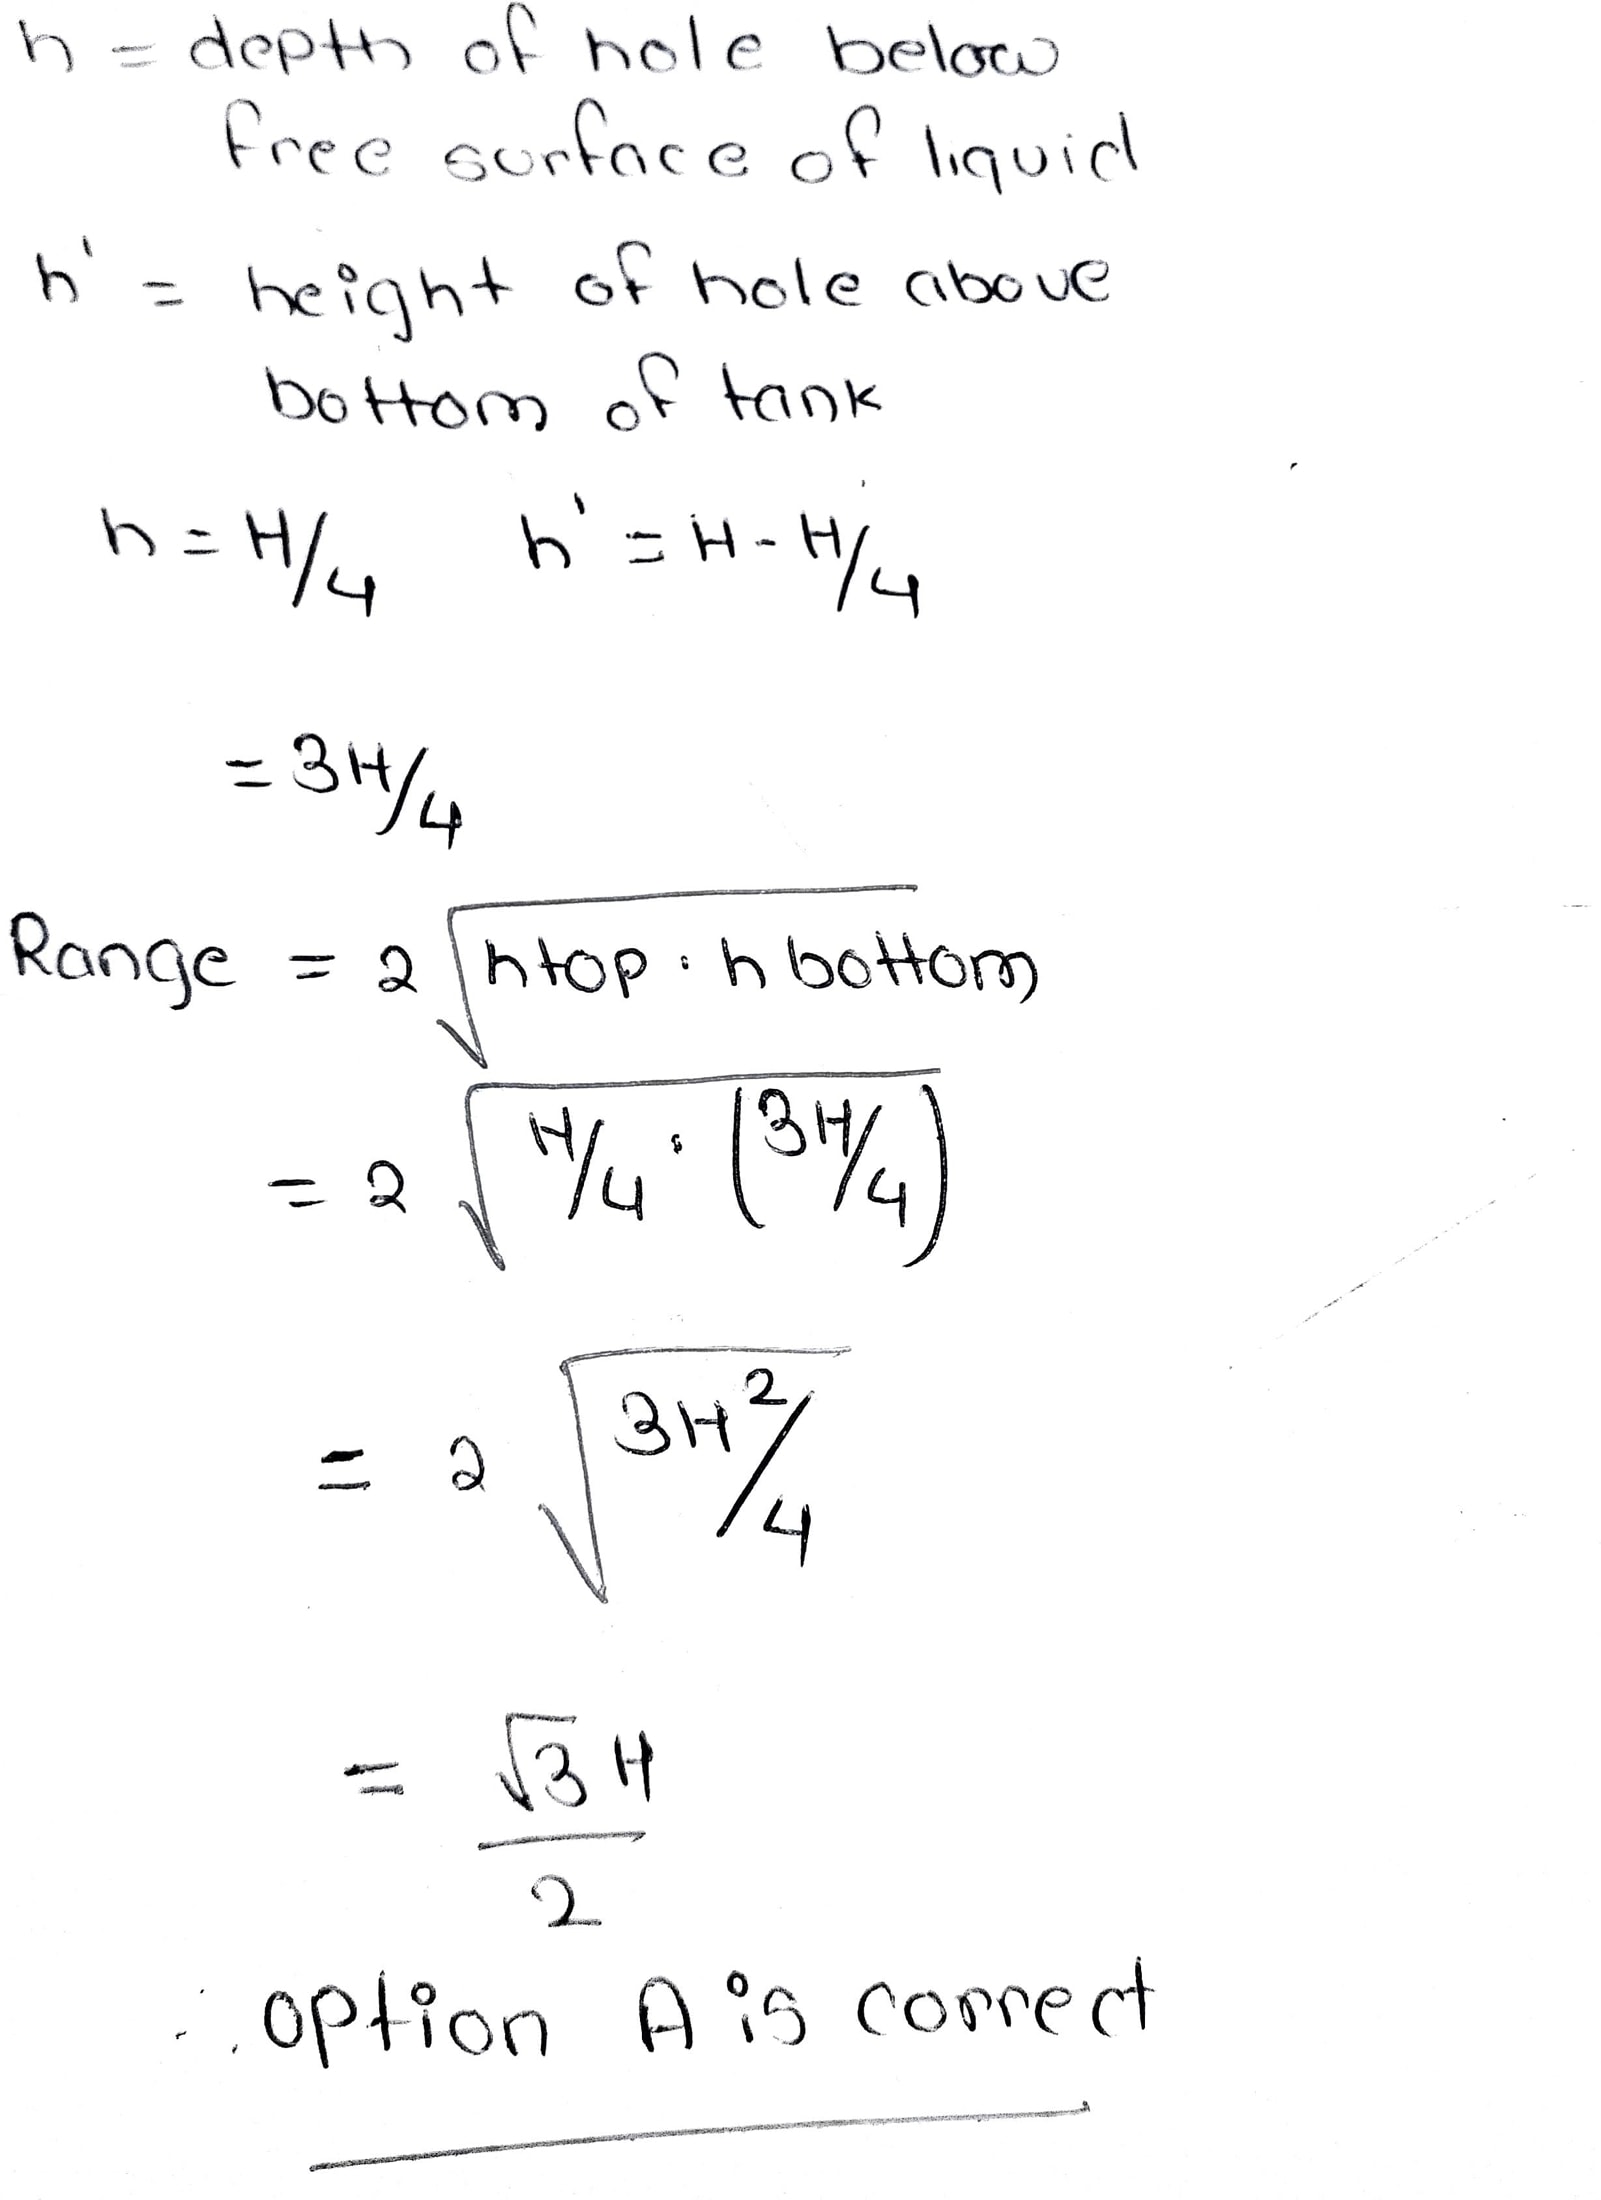 h = depth of hole below
free surface of liquid
h' = height of hole above
bottom of tank
h = H/4 h' = H - H/4
= 3H/4
Range = 2 √htop · h bottom
= 2 √H/4 · (3H/4)
= 2 √3H²/4
= √3 H
2
∴ option A is correct